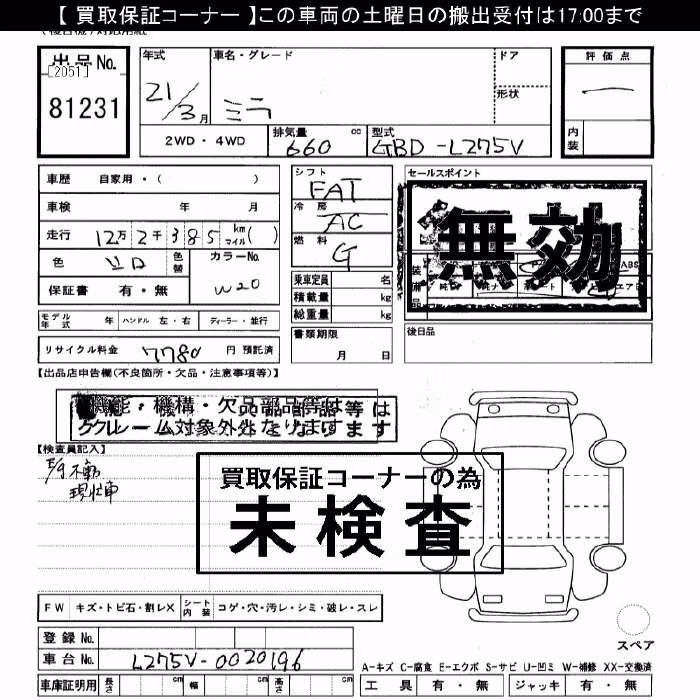 【 買取保証コーナー 】この車両の土曜日の搬出受付は17:00まで
出品No.
[2051]
81231
年式
車名・グレード
ドア
形状
評価点
21/3月
ミラ
内装
2WD・4WD
排気量
660
cc
型式
GBD-L275V
車歴 自家用・( )
車検 年 月
走行 12万2千385 km マイル( )
色
シロ
色替
カラーNo.
W20
保証書 有・無
シフト
FAT
冷房
AC
燃料
G
乗車定員 名
積載量 kg
総重量 kg
セールスポイント
無効
モデル年式 年 ハンドル 左・右 ディーラー・並行
書類期限
月 日
後日品
リサイクル料金 7780 円 預託済
【出品店申告欄(不良箇所・欠品・注意事項等)】
機能・機構・欠品部品等は
クレーム対象外となります
【検査員記入】
E/g不動
現状車
買取保証コーナーの為
未検査
FW キズ・トビ石・割レX シート内装 コゲ・穴・汚レ・シミ・破レ・スレ
スペア
登録No.
車台No. L275V-0020196
A-キズ C-腐食 E-エクボ S-サビ U-凹ミ W-補修 XX-交換済
車庫証明用 長さ cm 幅 cm 高さ cm
工具 有・無 ジャッキ 有・無